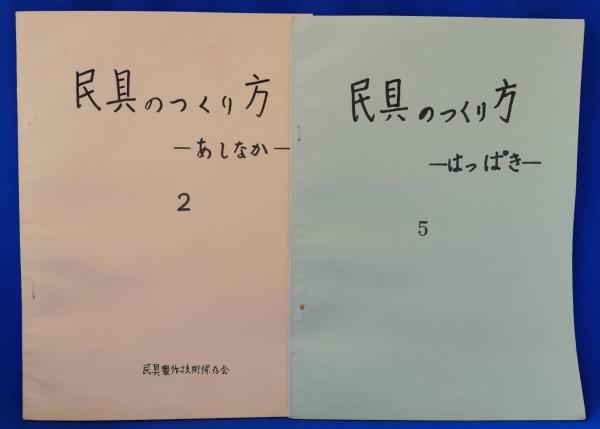 民具のつくり方
―あしなか―
2
民具製作技術保存会
民具のつくり方
―はっぱき―
5